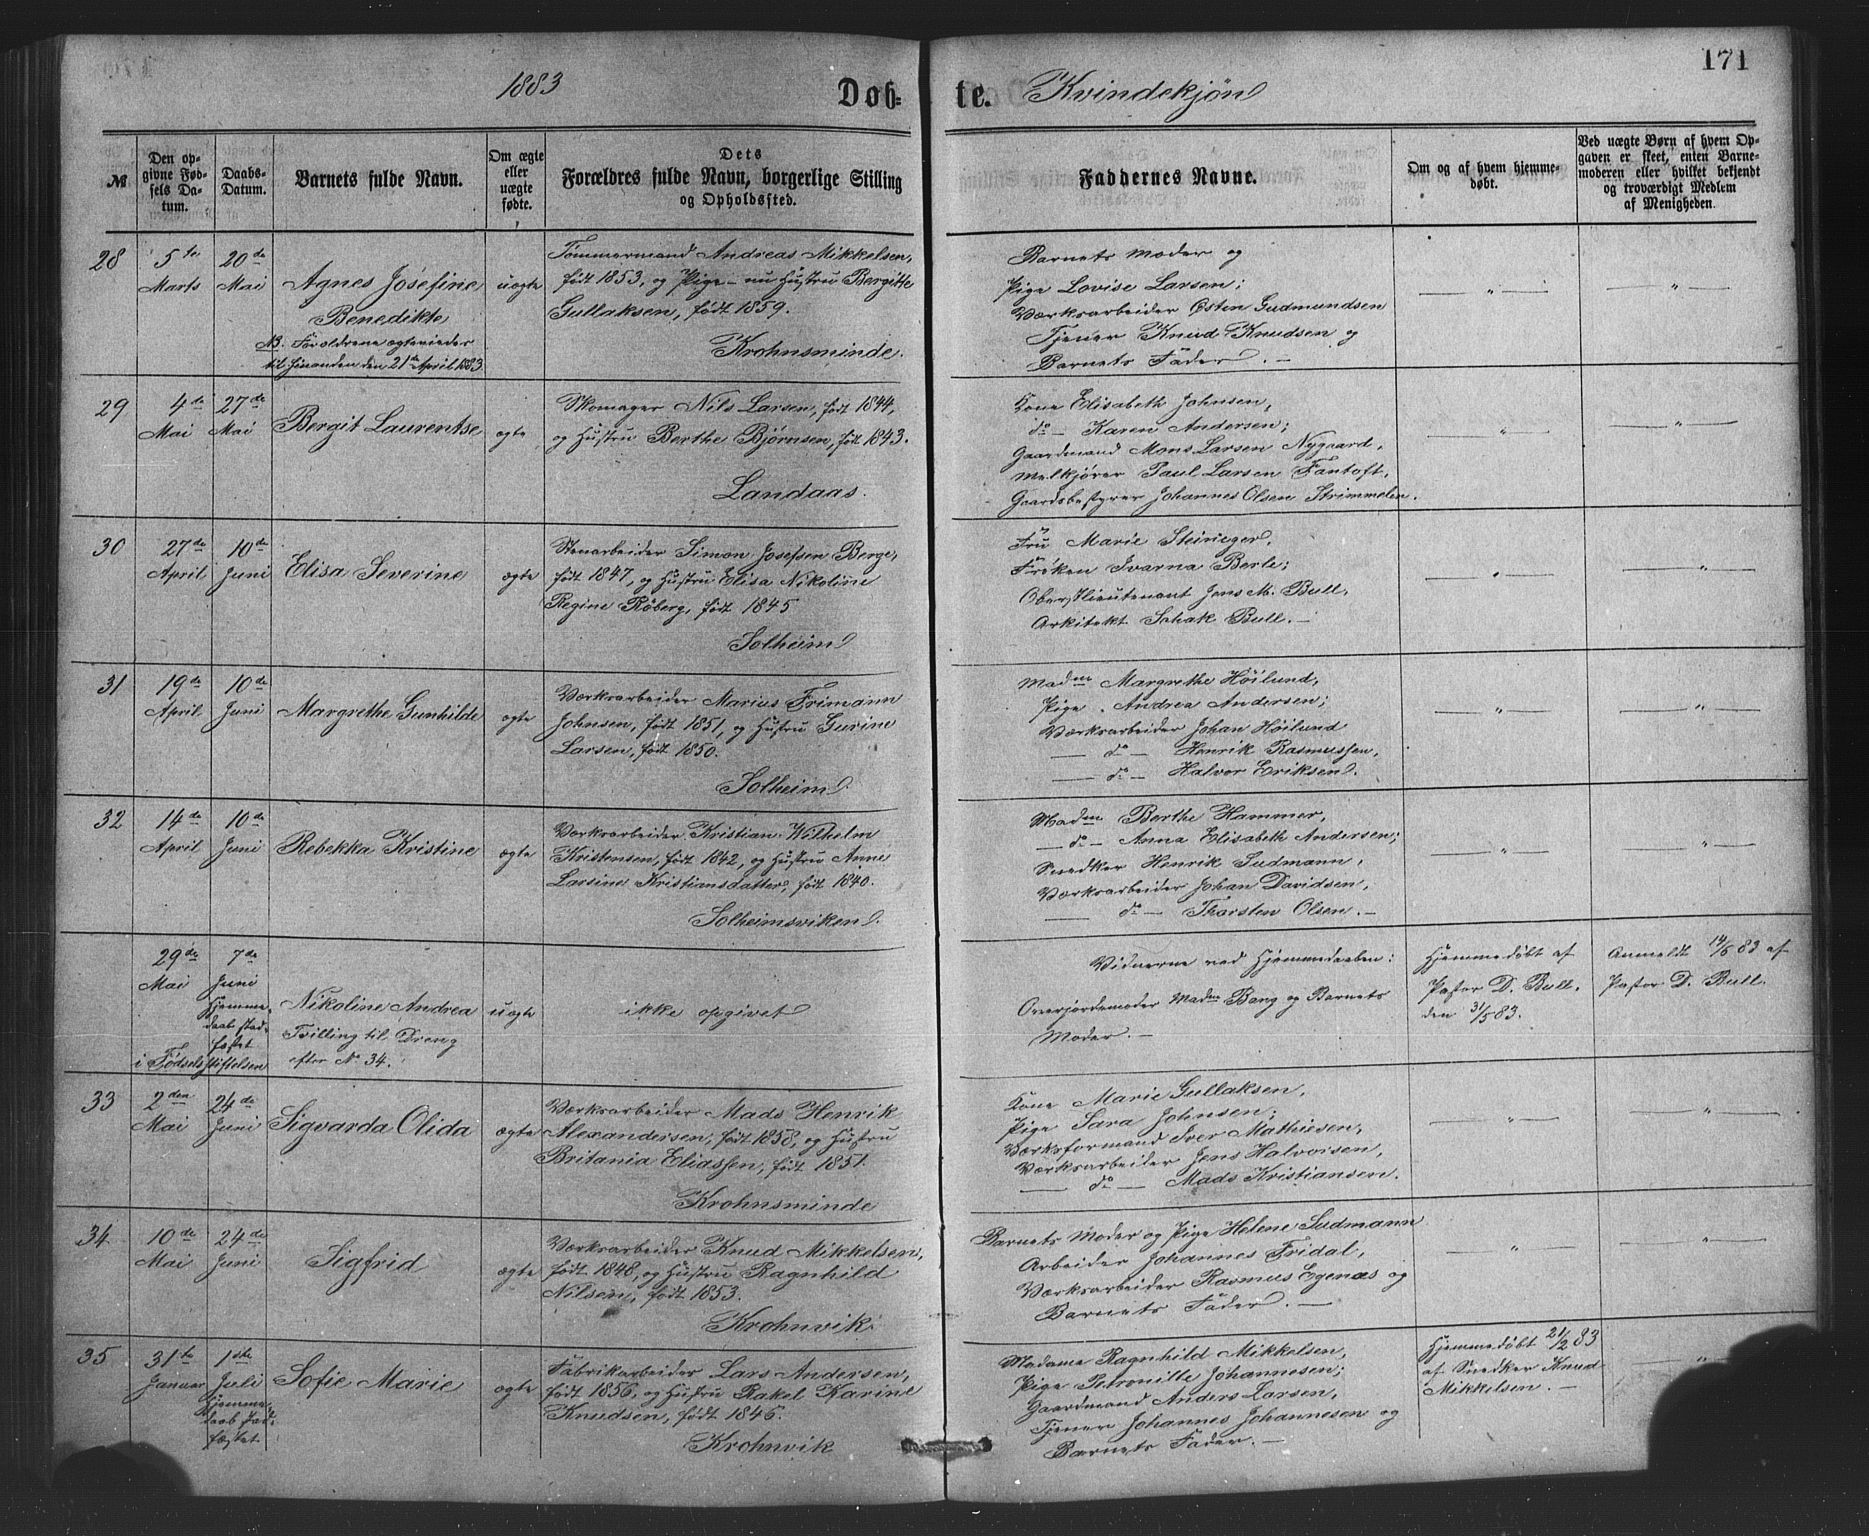 1883
Døb=
te.
Kvindekjøn
171
№
Den op-
givne Fød-
sels Da-
tum.
Daabs-
Datum.
Barnets fulde Navn.
Om ægte
eller
uægte
fødte.
Dets
Forældres fulde Navn, borgerlige Stilling
og Opholdssted.
Faddernes Navne.
Om og af hvem hjemme-
døbt.
Ved uægte Børn af hvem Op-
gaven er skeet, enten Barne-
moderen eller hvilket bekjendt
og troværdigt Medlem
af Menigheden.
28
5te
Marts
20de
Mai
Agnes Josefine
Benedikte
NB. Forældrene ægteviede
til hinanden den 21de April 1883.
uægte
Tømmermand Andreas Mikkelsen,
født 1853, og Pige - nu Hustru Bergitte
Gullaksen, født 1859.
Krohnsminde.
Barnets Moder og
Pige Lovise Larsen;
Værksarbeider Østen Gudmundsen
Tjener Knud Knudsen og
Barnets Fader. —
— " —
— " —
29
4de
Mai
27de
Mai
Bergit Laurentse
ægte
Skomager Nils Larsen, født 1844,
og Hustru Berthe Bjørnsen, født 1843.
Landaas.
Kone Elisabeth Johnsen,
do — Karen Andersen;
Gaardmand Mons Larsen Nygaard,
Melkjører Paul Larsen Fantoft,
Gaardsbestyrer Johannes Olsen Strimmelen.
— " —
— " —
30
27de
April
10de
Juni
Elisa Severine
ægte
Stenarbeider Simon Josefsen Berge,
født 1847, og Hustru Elisa Nikoline
Regine Røberg, født 1845
Solheim
Fru Marie Steineger,
Frøken Ivarna Berle;
Oberstlieutenant Jens M. Bull,
Arkitekt Schak Bull. —
— " —
— " —
31
19de
April
10de
Juni
Margrethe Gunhilde
ægte
Værksarbeider Marius Frimann
Johnsen, født 1851, og Hustru Gurine
Larsen, født 1850.
Solheim
Madme Margrethe Höilund,
Pige Andrea Andersen;
Værksarbeider Johan Höilund
— do — Henrik Rasmussen,
— do — Halvor Eriksen.
— " —
— " —
32
14de
April
10de
Juni
Rebekka Kristine
ægte
Værksarbeider Kristian Wilhelm
Kristensen, født 1842, og Hustru Anne
Larsine Kristiansdatter, født 1840.
Solheimsviken.
Madme Berthe Hammer,
— do — Anna Elisabeth Andersen;
Snedker Henrik Sudmann,
Værksarbeider Johan Davidsen,
— do — Thorsten Olsen. —
— " —
— " —
29de
Mai
i Fødselsstiftelsen
7de
Juni
Hjemme-
daab stad-
fæstet
Nikoline Andrea
Tvilling til Dreng
efter No 34.
uægte
ikke opgivet
Vidnerne ved Hjemmedaaben:
Overjordemoder Madme Bang og Barnets
Moder. —
Hjemmedøbt af
Pastor D. Bull.
den 31/5 83.
Anmeldt 14/6 83 af
Pastor D. Bull.
33
2den
Mai
24de
Juni
Sigvarda Olida
ægte
Værksarbeider Mads Henrik
Alexandersen, født 1858, og Hustru
Britania Eliassen, født 1851.
Krohnsminde
Kone Marie Gullaksen,
Pige Sara Johnsen;
Værksformand Iver Mathiesen,
Værksarbeider Jens Halvorsen,
— do — Mads Kristiansen.
— " —
— " —
34
10de
Mai
24de
Juni
Sigfrid
ægte
Værksarbeider Knud Mikkelsen,
født 1848, og Hustru Ragnhild
Nilsen, født 1853.
Krohnvik
Barnets Moder og Pige Helene Sudmann
Arbeider Johannes Fridal,
Værksarbeider Rasmus Egenæs og
Barnets Fader. —
— " —
— " —
35
31te
Januar
1ste
Juli
Hjemme-
daab stad-
fæstet
Sofie Marie
ægte
Fabrikarbeider Lars Andersen,
født 1856, og Hustru Rakel Karine
Knudsen, født 1846.
Krohnvik
Madame Ragnhild Mikkelsen,
Pige Petronille Johannesen;
Gaardmand Anders Larsen,
Tjener Johannes Johannesen og
Barnets Fader. —
Hjemmedøbt 21/2 83
af Snedker Knud
Mikkelsen. —
— " —